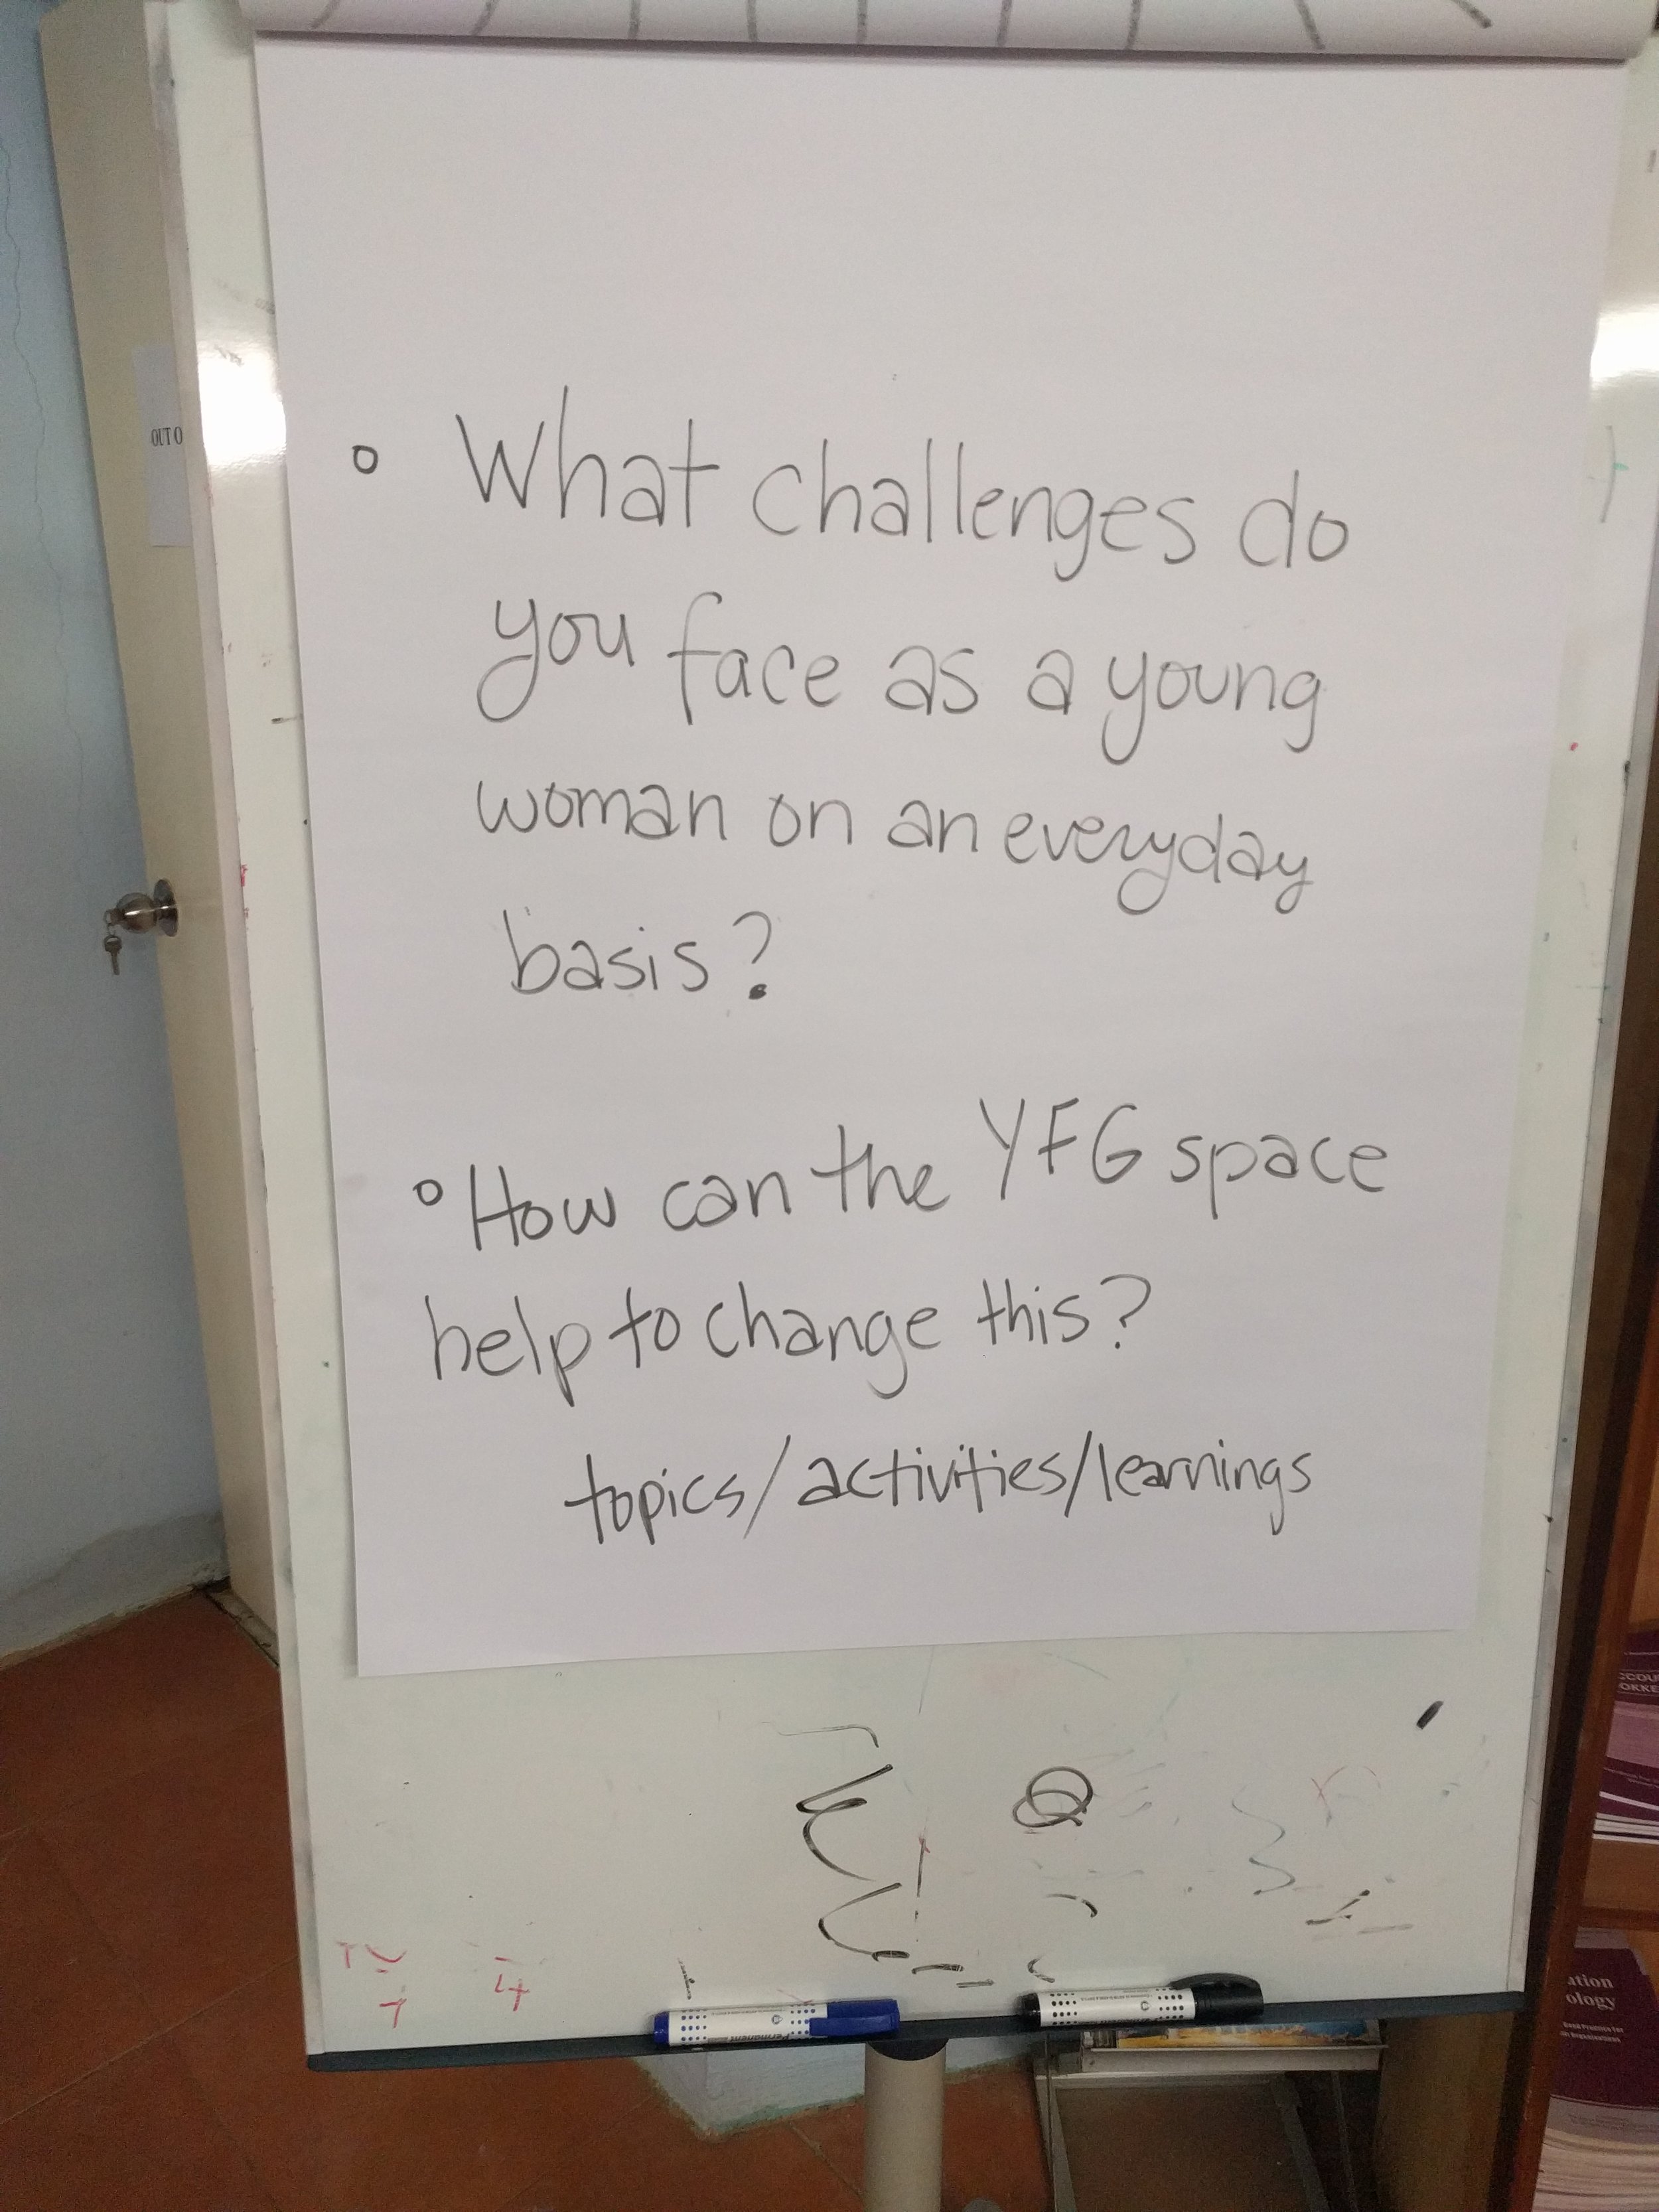 ○ What challenges do
you face as a young
woman on an everyday
basis?
○ How can the YFG space
help to change this?
topics/activities/learnings
OUT O
Permanent
ation
ology